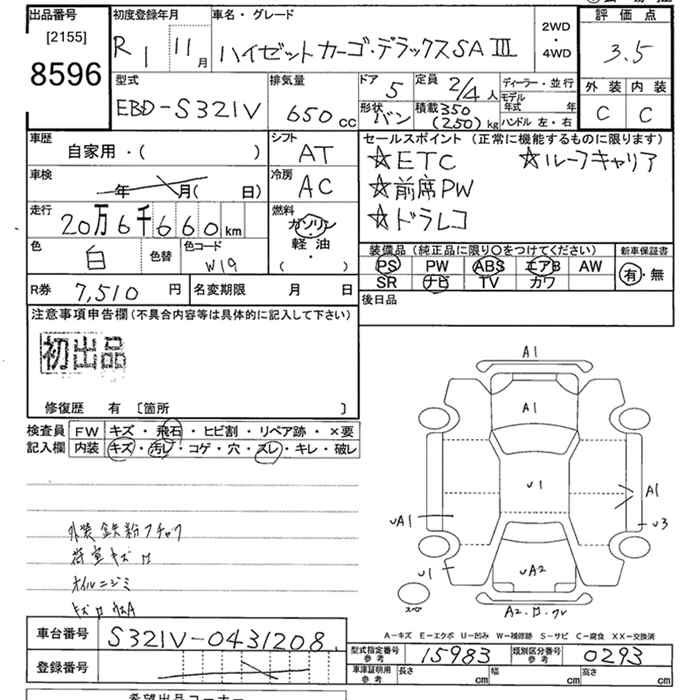 出品番号
[2155]
8596
初度登録年月
R 1 11月
車名・グレード
ハイゼットカーゴ・デラックスSA III
2WD
・
4WD
評価点
3.5
外装 内装
C C
型式
EBD-S321V
排気量
650 cc
ドア
5
定員
2/4人
形状
バン
積載 350
(250) kg
ディーラー・並行
モデル
年式 年
ハンドル 左・右
車歴
自家用・( )
シフト
AT
車検
年 月( 日)
冷房
AC
走行
20万6千660km
燃料
ガソリン
・
軽油
・
( )
色
白
色替
色コード
W19
セールスポイント (正常に機能するものに限ります)
☆ETC ☆ルーフキャリア
☆前席PW
☆ドラレコ
装備品 (純正品に限り○をつけてください)
PS PW ABS エアB AW
SR ナビ TV カワ
新車保証書
有・無
R券 7,510 円
名変期限 月 日
後日品
注意事項申告欄(不具合内容等は具体的に記入して下さい)
初出品
修復歴 有 〔箇所 〕
検査員
記入欄
FW キズ・飛石・ヒビ割・リペア跡・×要
内装 キズ・汚レ・コゲ・穴・スレ・キレ・破レ
外装鉄粉フチャク
荷室キズロ
オイルニジミ
A1
A1
U1
A1
U3
UA1
U1
UA2
スペア
A-キズ E-エクボ U-凹み W-補修跡 S-サビ C-腐食 XX-交換済
車台番号 S321V-0431208
登録番号
型式指定番号
参考
15983
類別区分番号
参考
0293
車庫証明用
参考
長さ cm 幅 cm 高さ cm
希望出品コーナー